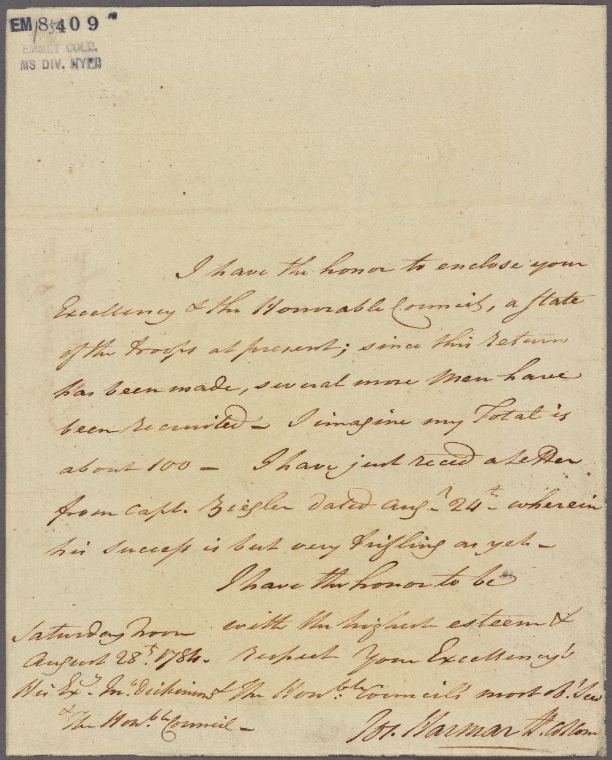 EM 8409
EMMET COLL.
MS DIV. NYPL
I have the honor to enclose your
Excellency & the Honorable Council, a state
of the troops at present; since this return
has been made, several more Men have
been recruited – I imagine my Total is
about 100 – I have just reced a Letter
from Capt. Ziegler dated Augt. 24th. wherein
his success is but very trifling as yet –
I have the honor to be
with the highest esteem &
respect Your Excellency's
& The Honble Councils most Ob. Serv
Saturday Noon
August 28th. 1784.
His Exy. Mr. Dickinson
& The Honble Council –
Jos. Harmar